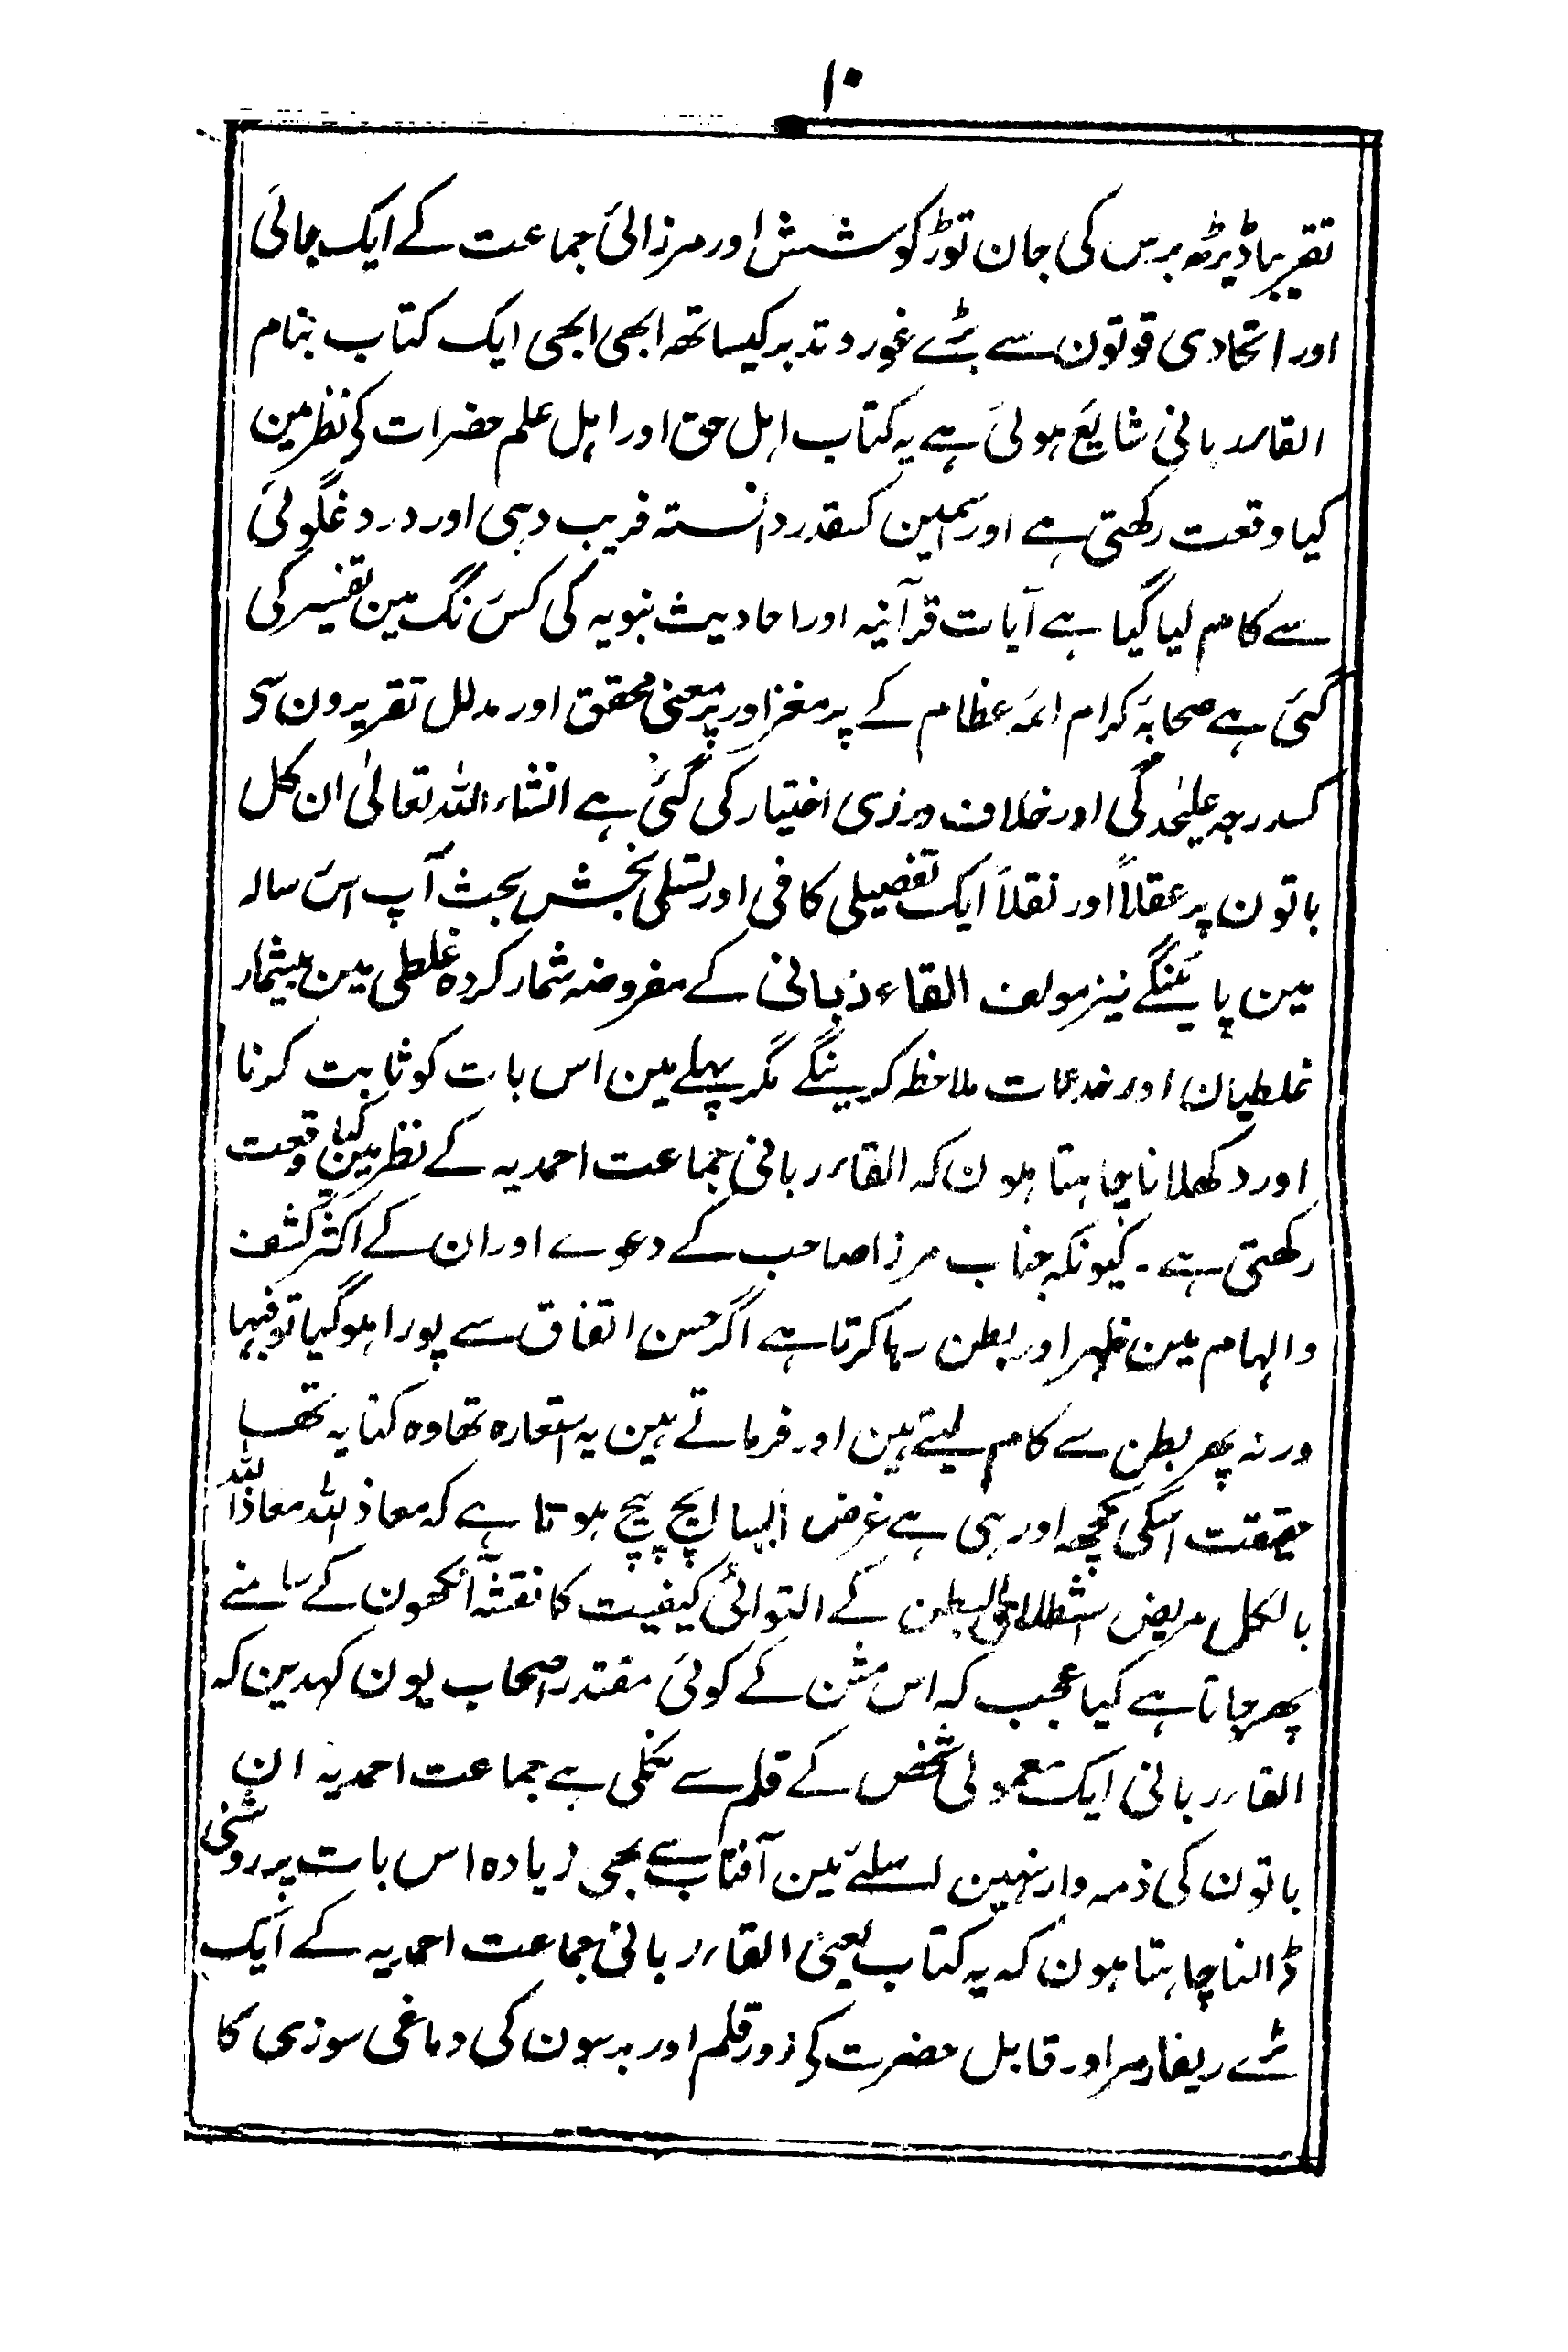 ۱۰
تقریباً ڈیڑھ برس کی جان توڑ کوشش اور مرزائی جماعت کے ایک جائی
اور اتحادی قوتون سے بڑے غور و تدبر کیساتھ ابھی ابھی ایک کتاب بنام
القاء ربانی شایع ہوئی ہے یہ کتاب اہل حق اور اہل علم حضرات کی نظر مین
کیا وقعت رکھتی ہے اور اسمین کسقدر دانستہ فریب دہی اور دروغگوئی
سے کام لیا گیا ہے آیات قرآنیہ اور احادیث نبویہ کی کس رنگ مین تفسیر کی
گئی ہے صحابہٴ کرام ائمہ عظام کے پر مغز اور پر معنی محقق اور مدلل تقریرون سی
کسدرجہ علیٰحدگی اور خلاف ورزی اختیار کی گئی ہے انشاء اللہ تعالیٰ ان کل
باتون پر عقلاً اور نقلاً ایک تفصیلی کافی اور تسلی بخش بحث آپ اس رسالہ
مین پائینگے نیز مولف القاء ربانی کے مفروضہ شمار کردہ غلطی مین بیشمار
غلطیان اور خدعات ملاحظہ کرینگے مگر پہلے مین اس بات کو ثابت کرنا
اور دکھلانا چاہتا ہون کہ القاء ربانی جماعت احمدیہ کے نظر مین کیا وقعت
رکھتی ہے۔ کیونکہ جناب مرزا صاحب کے دعوے اور ان کے اکثر کشف
والہام مین ظہر اور بطن رہا کرتا ہے اگر حسن اتفاق سے پورا ہو گیا تو فبہا
ورنہ پھر بطن سے کام لیتے ہین اور فرماتے ہین یہ استعارہ تھا وہ کنایہ تھا
حقیقت اسکی کچھ اور ہی ہے غرض ایسا ایچ پیچ ہوتا ہے کہ معاذ اللہ معاذ اللہ
بالکل مریض البطن کے التوائی کیفیت کا نقشہ آنکھون کے سامنے
پھر جاتا ہے کیا عجب کہ اس مشن کے کوئی مقتدر اصحاب یون کہدین کہ
القاء ربانی ایک معمولی شخص کے قلم سے نکلی ہے جماعت احمدیہ ان
باتون کی ذمہ وار نہین اسلئے مین آفتاب سے بھی زیادہ اس بات پر روشنی
ڈالنا چاہتا ہون کہ یہ کتاب یعنی القاء ربانی جماعت احمدیہ کے ایک
بڑے ریفارمر اور قابل حضرت کی زور قلم اور برسون کی دماغی سوزی کا